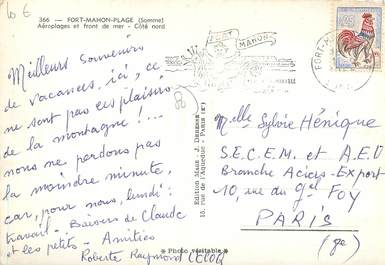 10 €
366 — FORT-MAHON-PLAGE (Somme)
Aéroplages et front de mer - Côté nord
Meilleurs souvenirs
de vacances, ici, ce
ne sont pas les plaisirs
de la montagne !...
nous ne perdons pas
la moindre minute,
car, pour nous, lundi :
travail - Baisers de Claude
et les petits - Amitiés
Roberte Raymond LECOQ
Edition Mage - J. 
10, rue de l'Aqueduc - PARIS (Xe)
FORT
MAHON
FORT-M
Melle Sylvie Hénique
S.E.C.E.M. et A.E.V
Branche Aciers-Export
10, rue du Gal FOY
PARIS
(8e)
* Photo véritable *